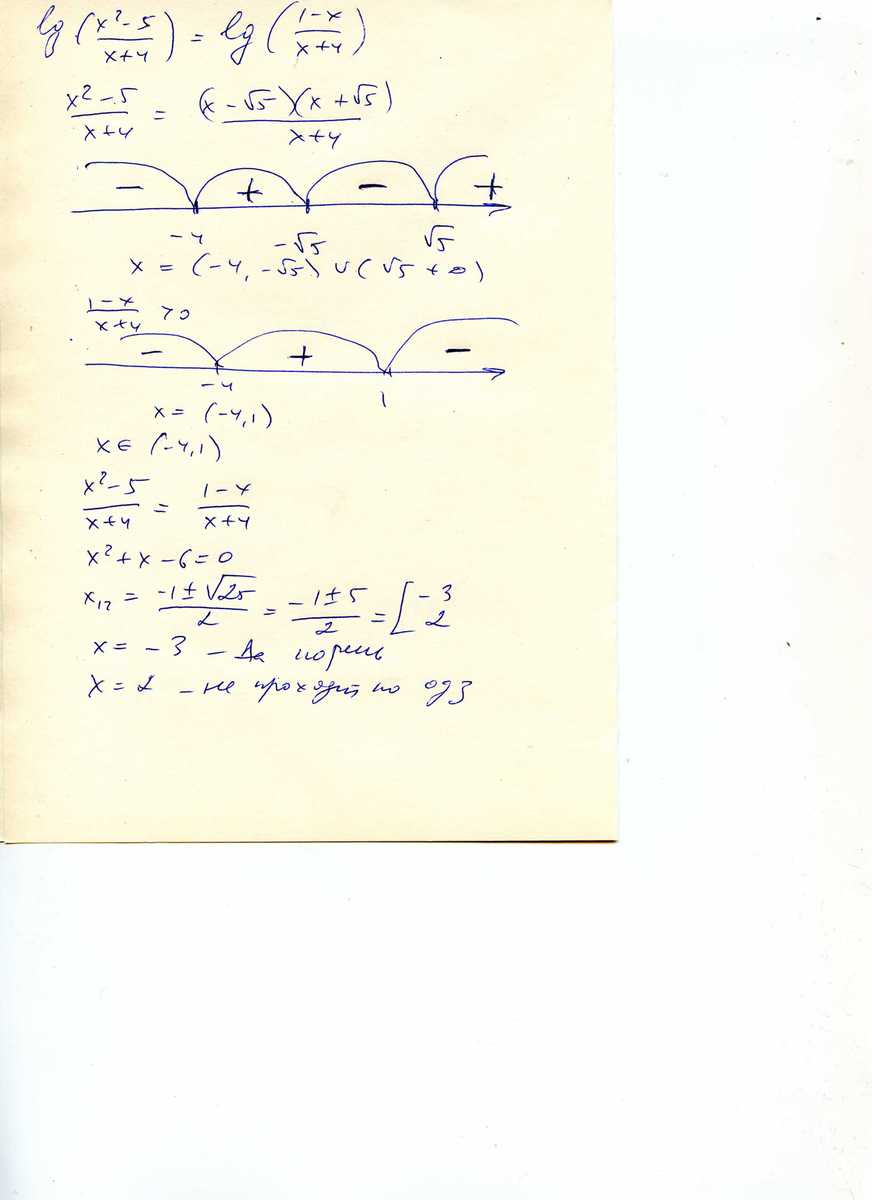 lg (x² - 5 / x+4) = lg (1-x / x+4)
x² - 5 / x+4 = (x - √5)(x + √5) / x+4
- + - +
-4 -√5 √5
x = (-4, -√5) ∪ (√5 + ∞)
1-x / x+4 > 0
- + -
-4 1
x = (-4, 1)
x ∈ (-4, 1)
x² - 5 / x+4 = 1-x / x+4
x² + x - 6 = 0
x₁₂ = -1 ± √25 / 2 = -1 ± 5 / 2 = [ -3 2
x = -3 - да корень
x = 2 - не проходит по одз